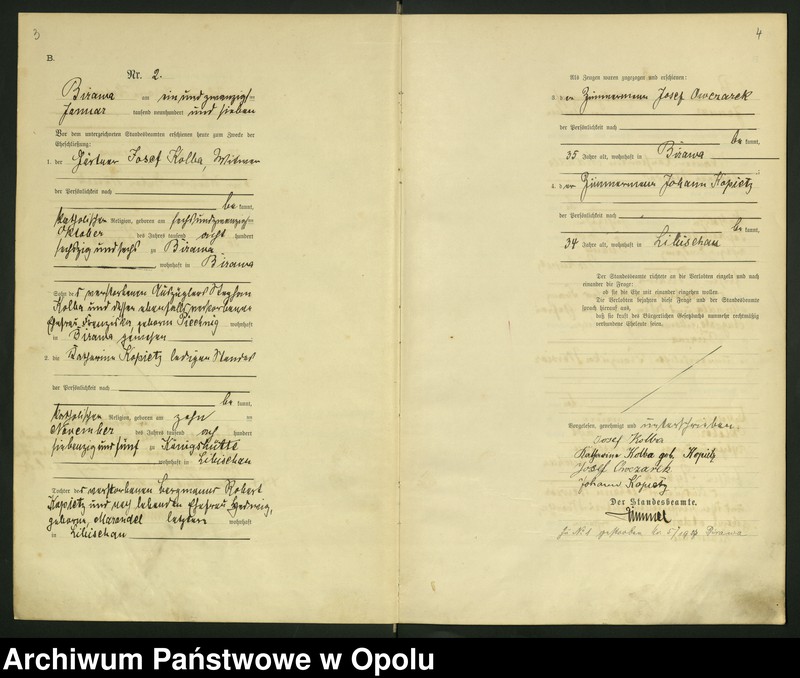 3
B.
Nr. 2.
Birawa am einundzwanzigsten
Januar tausend neunhundert und sieben
Vor dem unterzeichneten Standesbeamten erschienen heute zum Zweck der
Eheschließung:
1. der Gärtner Josef Kolba, Witwer
der Persönlichkeit nach
be kannt,
katholischer Religion, geboren am sechsundzwanzigsten
Oktober des Jahres tausend acht hundert
sechszig und sechs zu Birawa
, wohnhaft in Birawa
Sohn des verstorbenen Auszüglers
Kolba und dessen ebenfalls verstorbenen
Ehefrau Franziska geborne wohnhaft
in Birawa gewesen
2. die Katharina Kopietz ledigen Standes
der Persönlichkeit nach
be kannt,
katholischer Religion, geboren am zehnten
November des Jahres tausend acht hundert
siebenzig und fünf zu Königshütte
, wohnhaft in Libischau
Tochter des verstorbenen Bergmanns Robert
Kopietz und noch lebenden Ehefrau Hedwig,
geborne letztere wohnhaft
in Libischau
4
Als Zeugen waren zugezogen und erschienen:
3. der Zimmermann Josef Owczarek
der Persönlichkeit nach
be kannt,
35 Jahre alt, wohnhaft in Birawa
4. der Zimmermann Johann Kopietz
der Persönlichkeit nach
be kannt,
34 Jahre alt, wohnhaft in Libischau
Der Standesbeamte richtete an die Verlobten einzeln und nach
einander die Frage:
ob sie die Ehe mit einander eingehen wollen.
Die Verlobten bejahten diese Frage und der Standesbeamte
sprach hierauf aus,
daß sie kraft des Bürgerlichen Gesetzbuchs nunmehr rechtmäßig
verbundene Eheleute seien.
Vorgelesen, genehmigt und unterschrieben.
Josef Kolba
Katharina Kolba geb. Kopietz
Josef Owczarek
Johann Kopietz
Der Standesbeamte.
gestorben Birawa
Archiwum Państwowe w Opolu